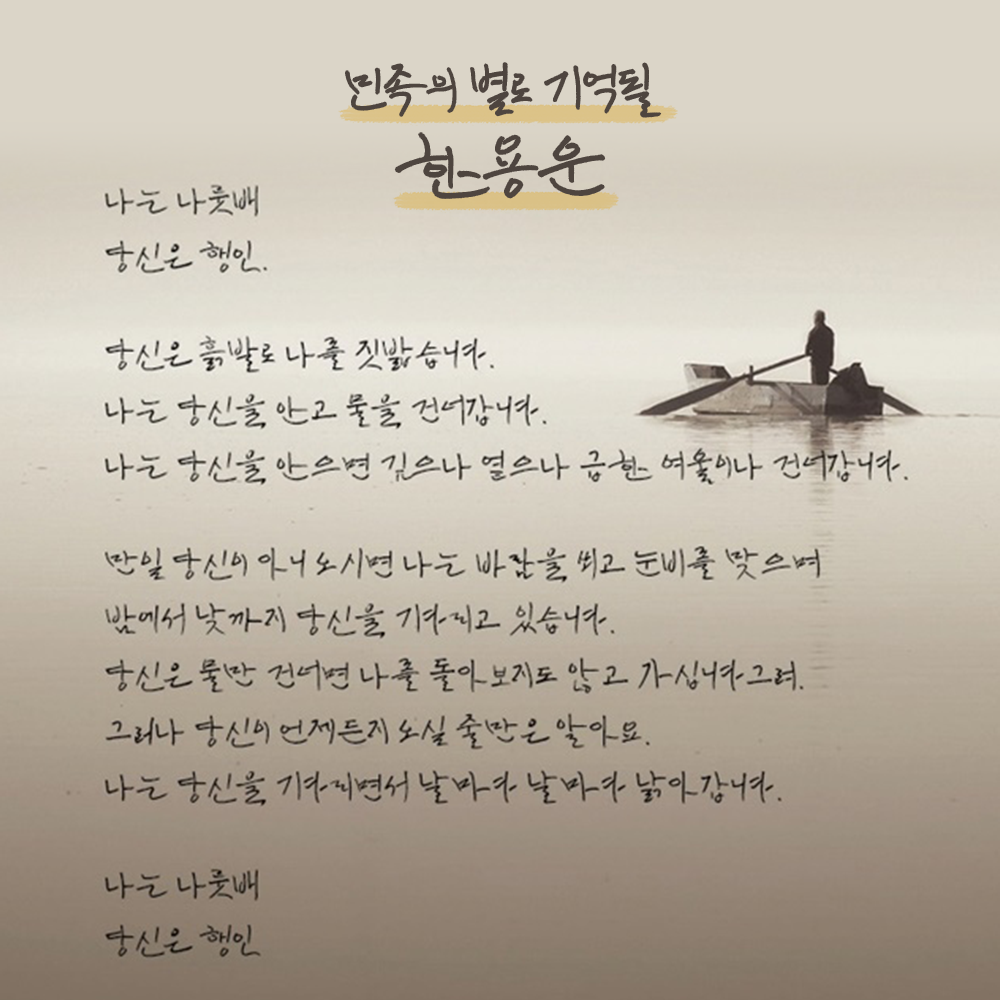 민족의 별로 기억될
한용운
나는 나룻배
당신은 행인.
당신은 흙발로 나를 짓밟습니다.
나는 당신을 안고 물을 건너갑니다.
나는 당신을 안으면 깊으나 옅으나 급한 여울이나 건너갑니다.
만일 당신이 아니 오시면 나는 바람을 쐬고 눈비를 맞으며
밤에서 낮까지 당신을 기다리고 있습니다.
당신은 물만 건너면 나를 돌아 보지도 않고 가십니다그려.
그러나 당신이 언제든지 오실 줄만은 알아요.
나는 당신을 기다리면서 날마다 날마다 낡아갑니다.
나는 나룻배
당신은 행인